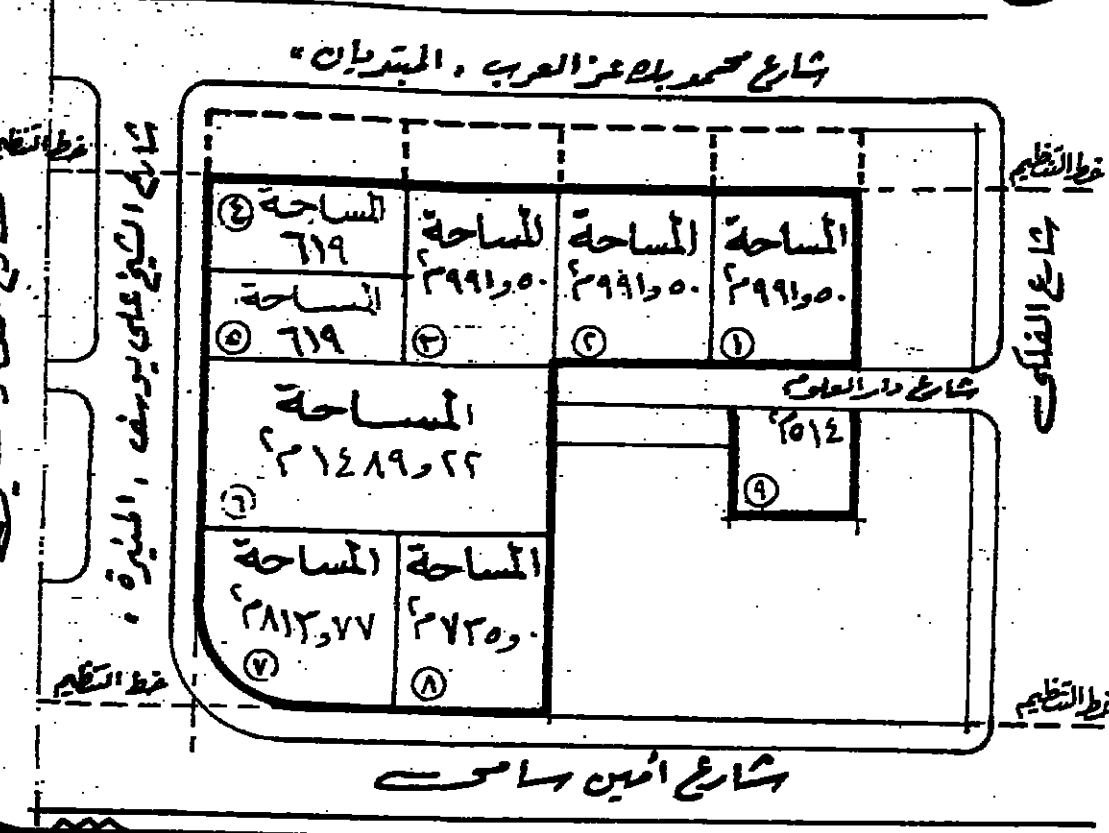 شارع محمد بك عز العرب ، المبتديان "
خط التنظيم
خط التنظيم
شارع الشيخ على يوسف ، المنيرة ،
شارع الفلكى
المساحة
٦١٩
٤
المساحة
٦١٩
٥
المساحة
٩٩١و٥٠م٢
٣
المساحة
٩٩١و٥٠م٢
٢
المساحة
٩٩١و٥٠م٢
١
شارع دار العلوم
٥١٤م٢
٩
المساحة
١٤٨٩و٢٢م٢
٦
المساحة
٨١٣و٧٧م٢
٧
المساحة
٧٣٥و٠م٢
٨
خط التنظيم
خط التنظيم
شارع أمين سامى